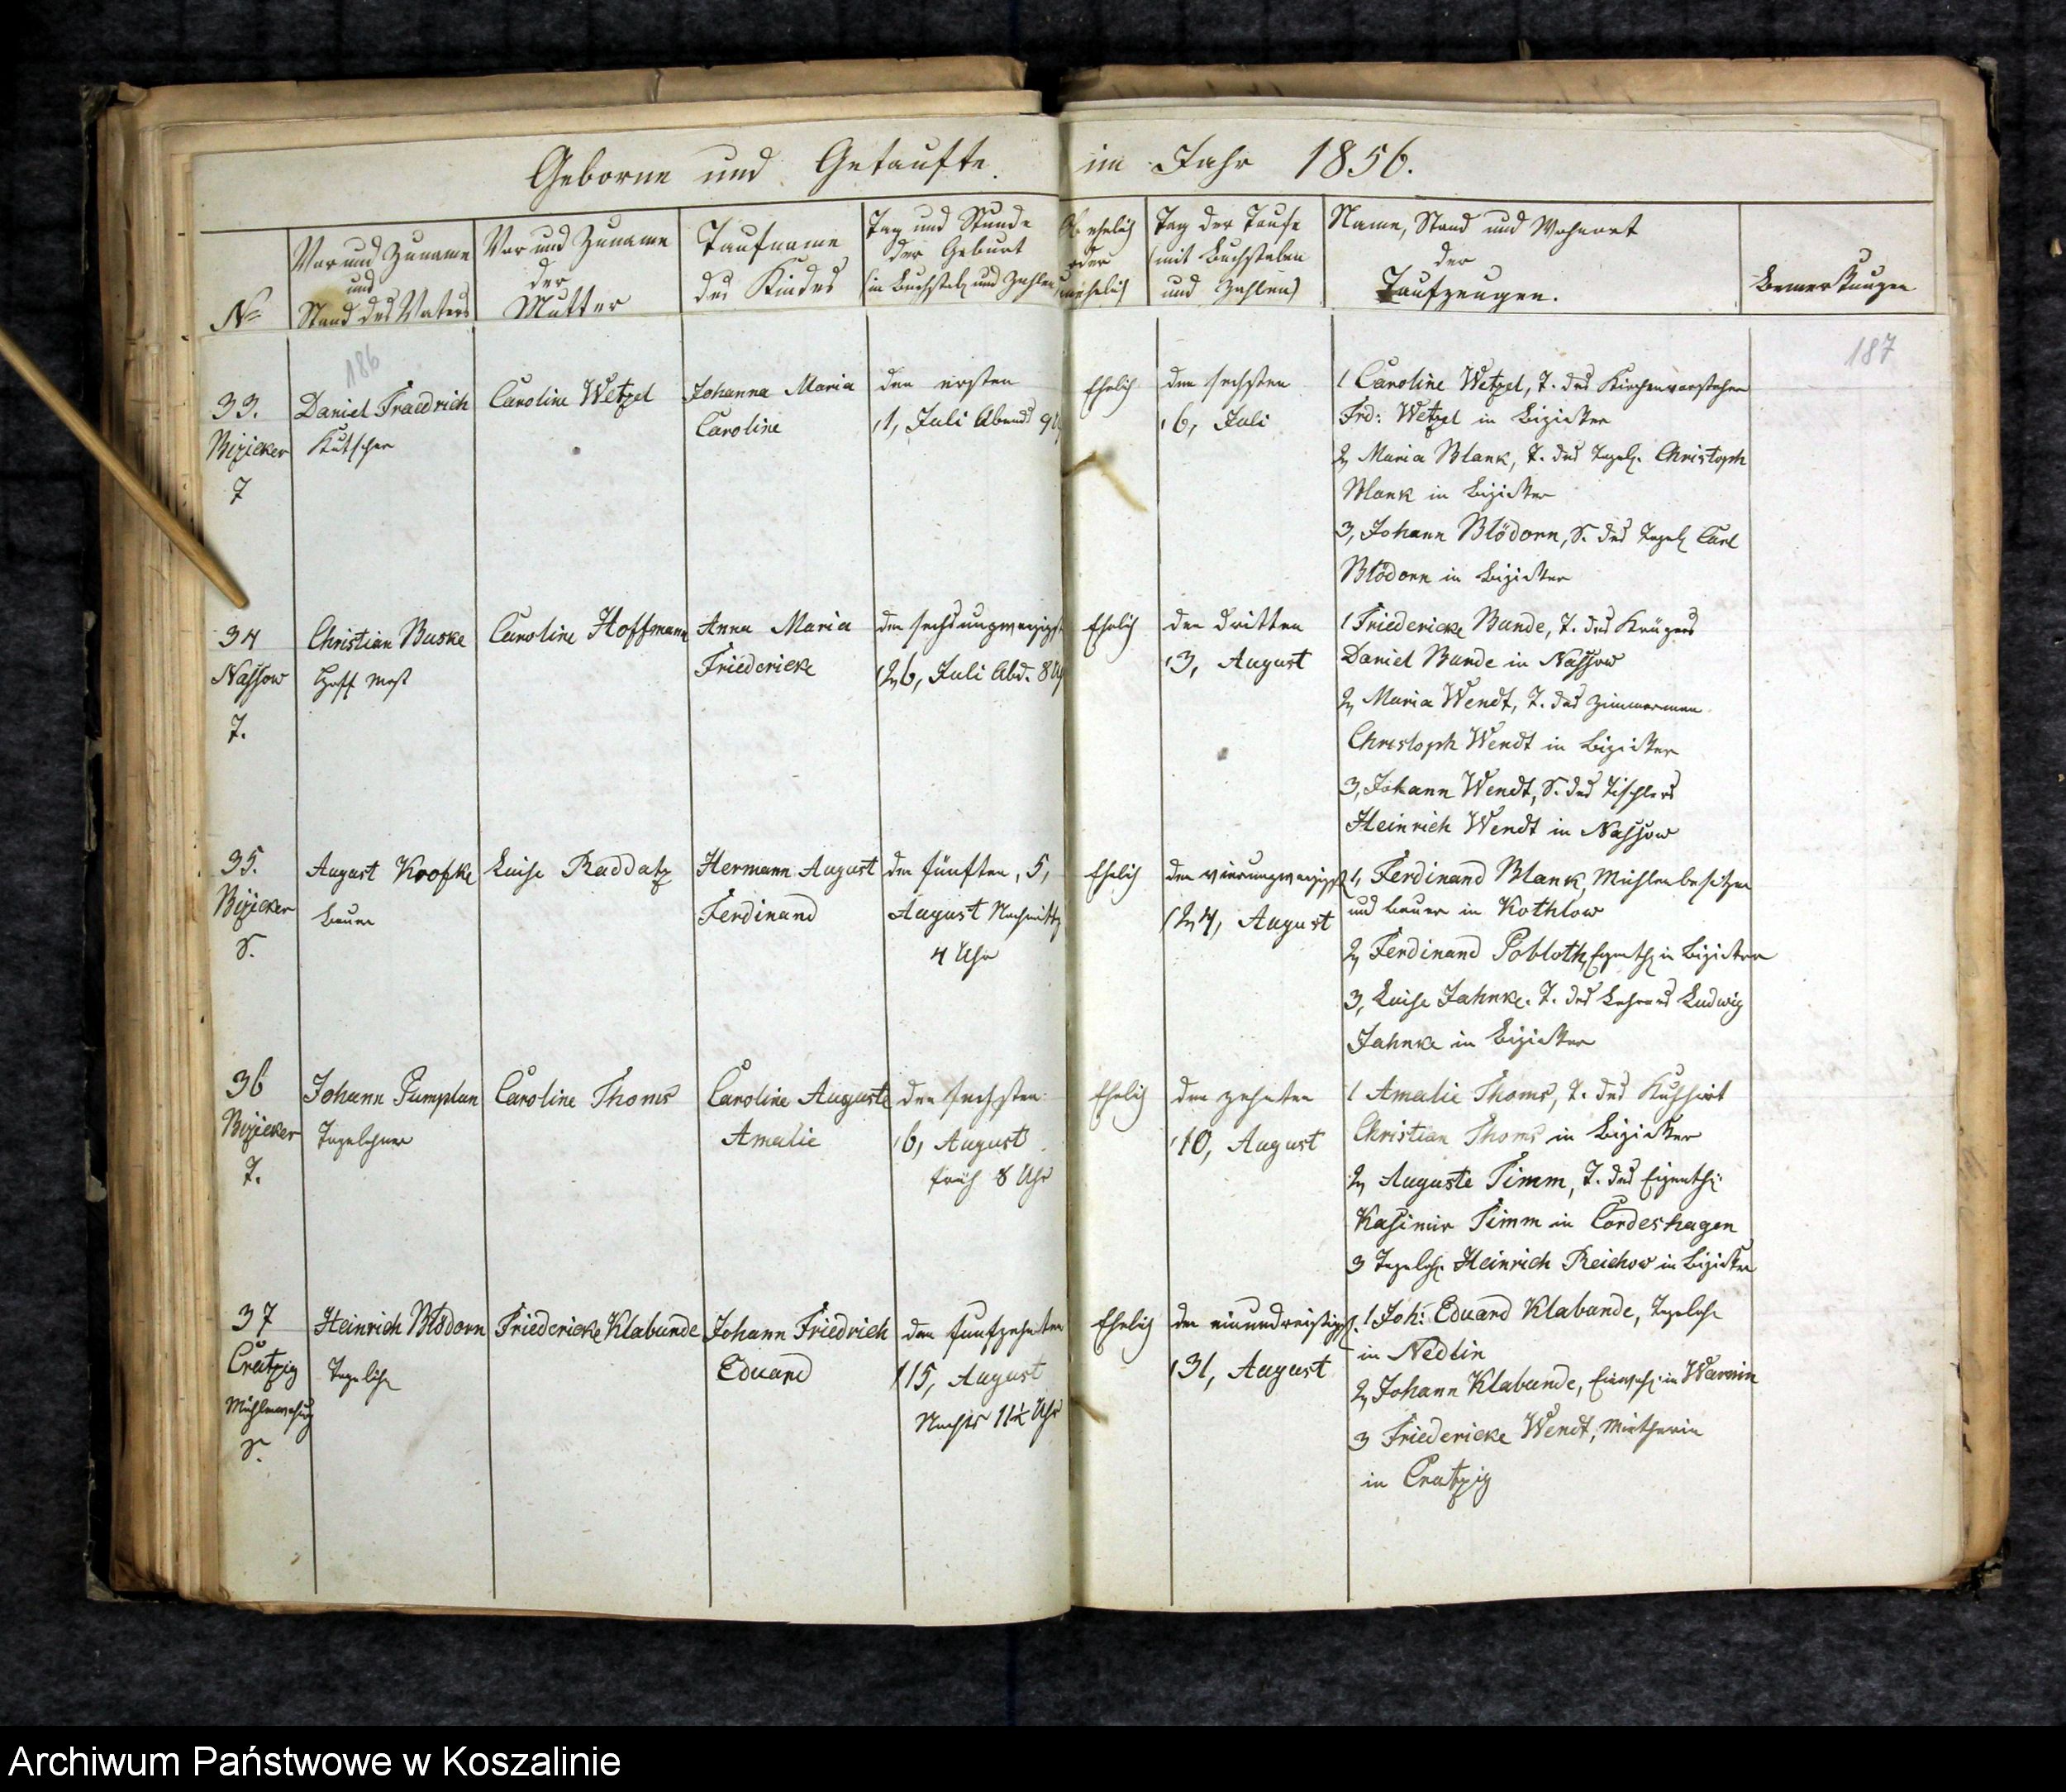 Geborne und Getaufte im Jahr 1856.
No
Vor und Zuname
und
Stand des Vaters
Vor und Zuname
der
Mutter
Taufname
des Kindes
Tag und Stunde
der Geburt
(in Buchstab. und Zahlen
Ob ehelich
oder
unehelich
Tag der Taufe
(mit Buchstaben
und Zahlen)
Name, Stand und Wohnort
der
Taufzeugen.
Bemerkungen
186
187
33.
Bizicker
T
Daniel Fraedrich
Kutscher
Caroline Wetzel
Johanna Maria
Caroline
den ersten
(1, Juli Abends 9 U
Ehelich
den sechsten
(6, Juli
1 Caroline Wetzel, T. des Kirchenvorsteher
Frd: Wetzel in Bizicker
2, Maria Blank, T. des Tagel. Christoph
Blank in Bizicker
3, Johann Blödorn, S. des Tagel Carl
Blödorn in Bizicker
34
Nassow
T.
Christian Buske
Caroline Hoffmann
Anna Maria
Friedericke
den sechsundzwanzigst
(26, Juli Abd. 8 U
Ehelich
den dritten
(3, August
1 Friedericke Bunde, T. des Krügers
Daniel Bunde in Nassow
2, Maria Wendt, T. des Zimmermann
Christoph Wendt in Bizicker
3, Johann Wendt, S. des Tischlers
Heinrich Wendt in Nassow
35.
Bizicker
S.
August Kropfke
Bauer
Luise Raddatz
Hermann August
Ferdinand
den fünften, 5,
August Nachmittg
4 Uhr
Ehelich
den vierundzwanzigst
(24, August
1, Ferdinand Blank Mühlenbesitzer
und Bauer in Kothlow
2, Ferdinand Pobloth, Eigenth. in Bizicker
3, Luise Jahnke. T. des Lehrers Ludwig
Jahnke in Bizicker
36
Bizicker
T.
Johann Pumplun
Tagelohner
Caroline Thoms
Caroline Auguste
Amalie
den sechsten
(6, August
früh 8 Uhr
Ehelich
den zehnten
(10, August
1 Amalie Thoms, T. des Kuhhirt
Christian Thoms in Bizicker
2, Auguste Timm, T. des Eigenth:
Kasimir Timm in Cordeshagen
3 Tagelh. Heinrich Reichow in Bizicker
37
Cratzig
S.
Heinrich Blödorn
Tagelöh
Friedericke Klabunde
Johann Friedrich
Eduard
den funfzehnten
(15, August
Nachts 11½ Uhr
Ehelich
den einundreisigst.
(31, August
1 Joh: Eduard Klabunde, Tageloh
in Nedlin
2, Johann Klabunde, Einwoh. in Warnin
3 Friedericke Wendt, Mietherin
in Cratzig
Archiwum Państwowe w Koszalinie